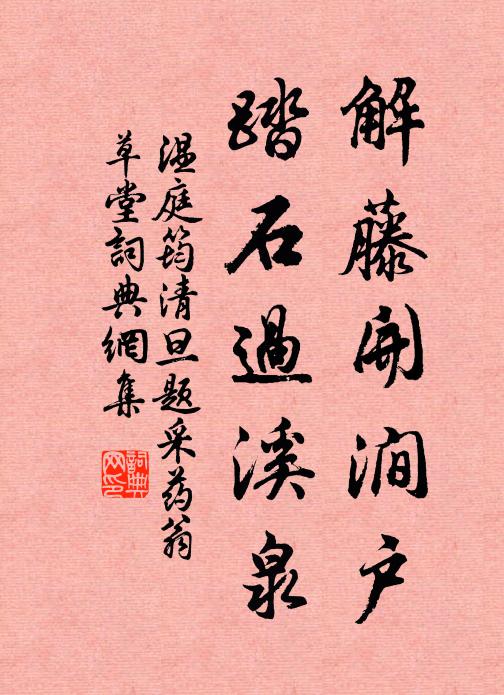 解藤開澗户
踏石過溪泉
温庭筠清旦题采药翁
草堂詞典網集
詞典网印